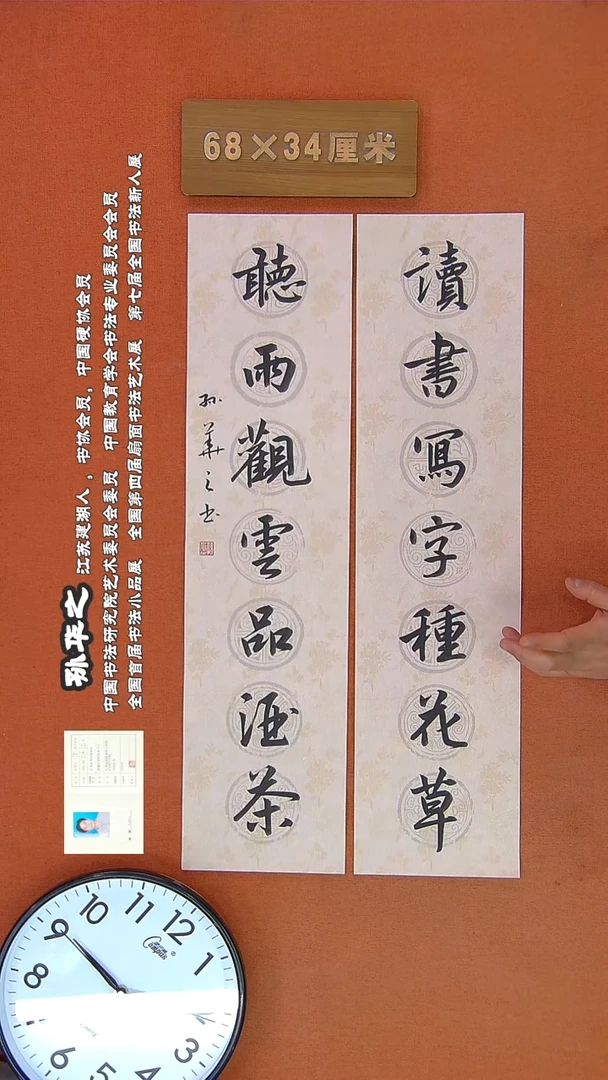 68×34厘米
讀書寫字種花草
聽雨觀雲品酒茶
孙華之书
孙华之 江苏建湖人，书协会员，中国硬协会员
中国书法研究院艺术委员会委员 中国教育学会书法专业委员会会员
全国首届书法小品展 全国第四届扇面书法艺术展 第七届全国书法新人展
10 11 12 1
9
8
3
6 5 4
Compas